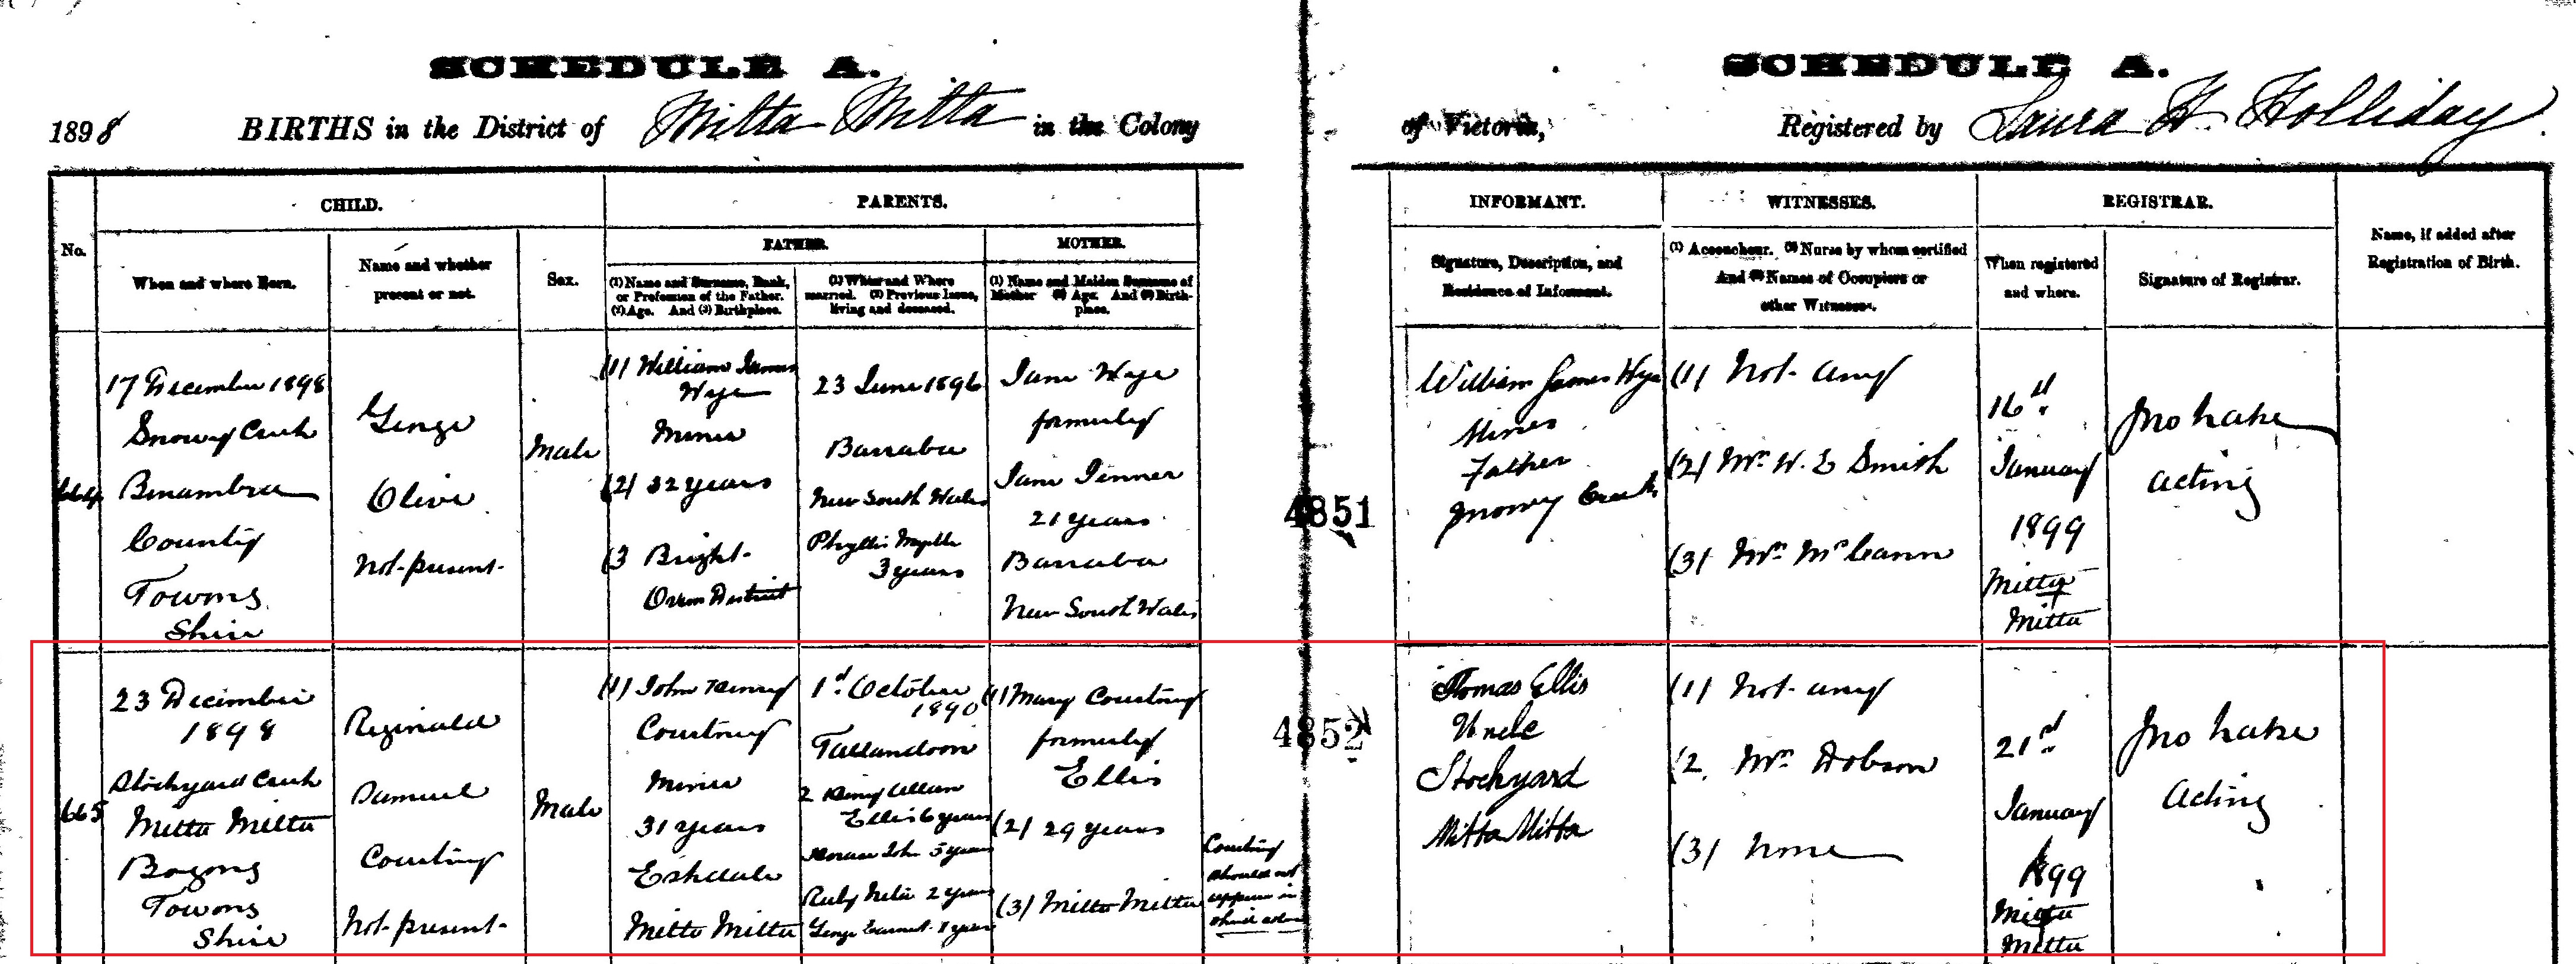 SCHEDULE A.
SCHEDULE A.
1898 BIRTHS in the District of Mitta Mitta in the Colony
of Victoria, Registered by Laura H. Holliday
CHILD.
PARENTS.
INFORMANT.
WITNESSES.
REGISTRAR.
No.
FATHER.
MOTHER.
When and where Born.
Name and whether
present or not.
Sex.
(1) Name and Surname, Rank,
or Profession of the Father.
(2) Age. And (3) Birthplace.
(1) When and Where
married. (2) Previous Issue,
living and deceased.
(1) Name and Maiden Surname of
Mother (2) Age. And (3) Birth-
place.
Signature, Description, and
Residence of Informant.
(1) Accoucheur. (2) Nurse by whom certified
And (3) Names of Occupiers or
other Witnesses.
When registered
and where.
Signature of Registrar.
Name, if added after
Registration of Birth.
664
17 December 1898
Snowy Creek
Benambra
County
Towong
Shire
George
Olive
Not present
Male
(1) William James
Wye
Miner
(2) 32 years
(3 Bright
Ovens District
23 June 1896
Barraba
New South Wales
Phyllis Myrtle
3 years
Jane Wye
formerly
Jane Jenner
21 years
Barraba
New South Wales
4851
William James Wye
Miner
Father
Snowy Creek
(1) Not any
(2) Mrs W. E Smith
(3) Mrs McCann
16th
January
1899
Mitta
Mitta
Jno Lake
Acting
665
23 December
1898
Stockyard Creek
Mitta Mitta
Bogong
Towong
Shire
Reginald
Samuel
Courtney
Not present
Male
(1) John Henry
Courtney
Miner
31 years
Eskdale
Mitta Mitta
1st October
1890
Tallandoon
2 Henry Allan
Ellis 6 years
Horace John 5 years
Ruby Nelia 2 years
George Earnest 1 year
(1) Mary Courtney
formerly
Ellis
(2) 29 years
(3) Mitta Mitta
Courtney
should not
appear in
third column
4852
Thomas Ellis
Uncle
Stockyard
Mitta Mitta
(1) Not any
(2. Mrs Dobson
(3) None
21st
January
1899
Mitta
Mitta
Jno Lake
Acting